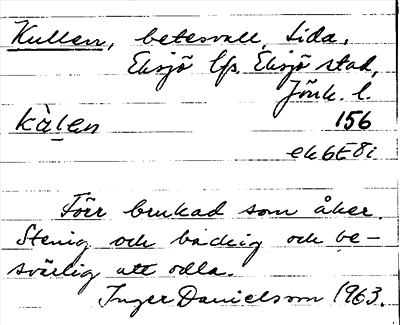 Kullen, betesvall, Lida,
Eksjö lfs. Eksjö stad,
Jönk. l.
kàlen 156
ek6E8i
Förr brukad som åker.
Stenig och backig och be-
svärlig att odla.
Inger Danielsson 1963.